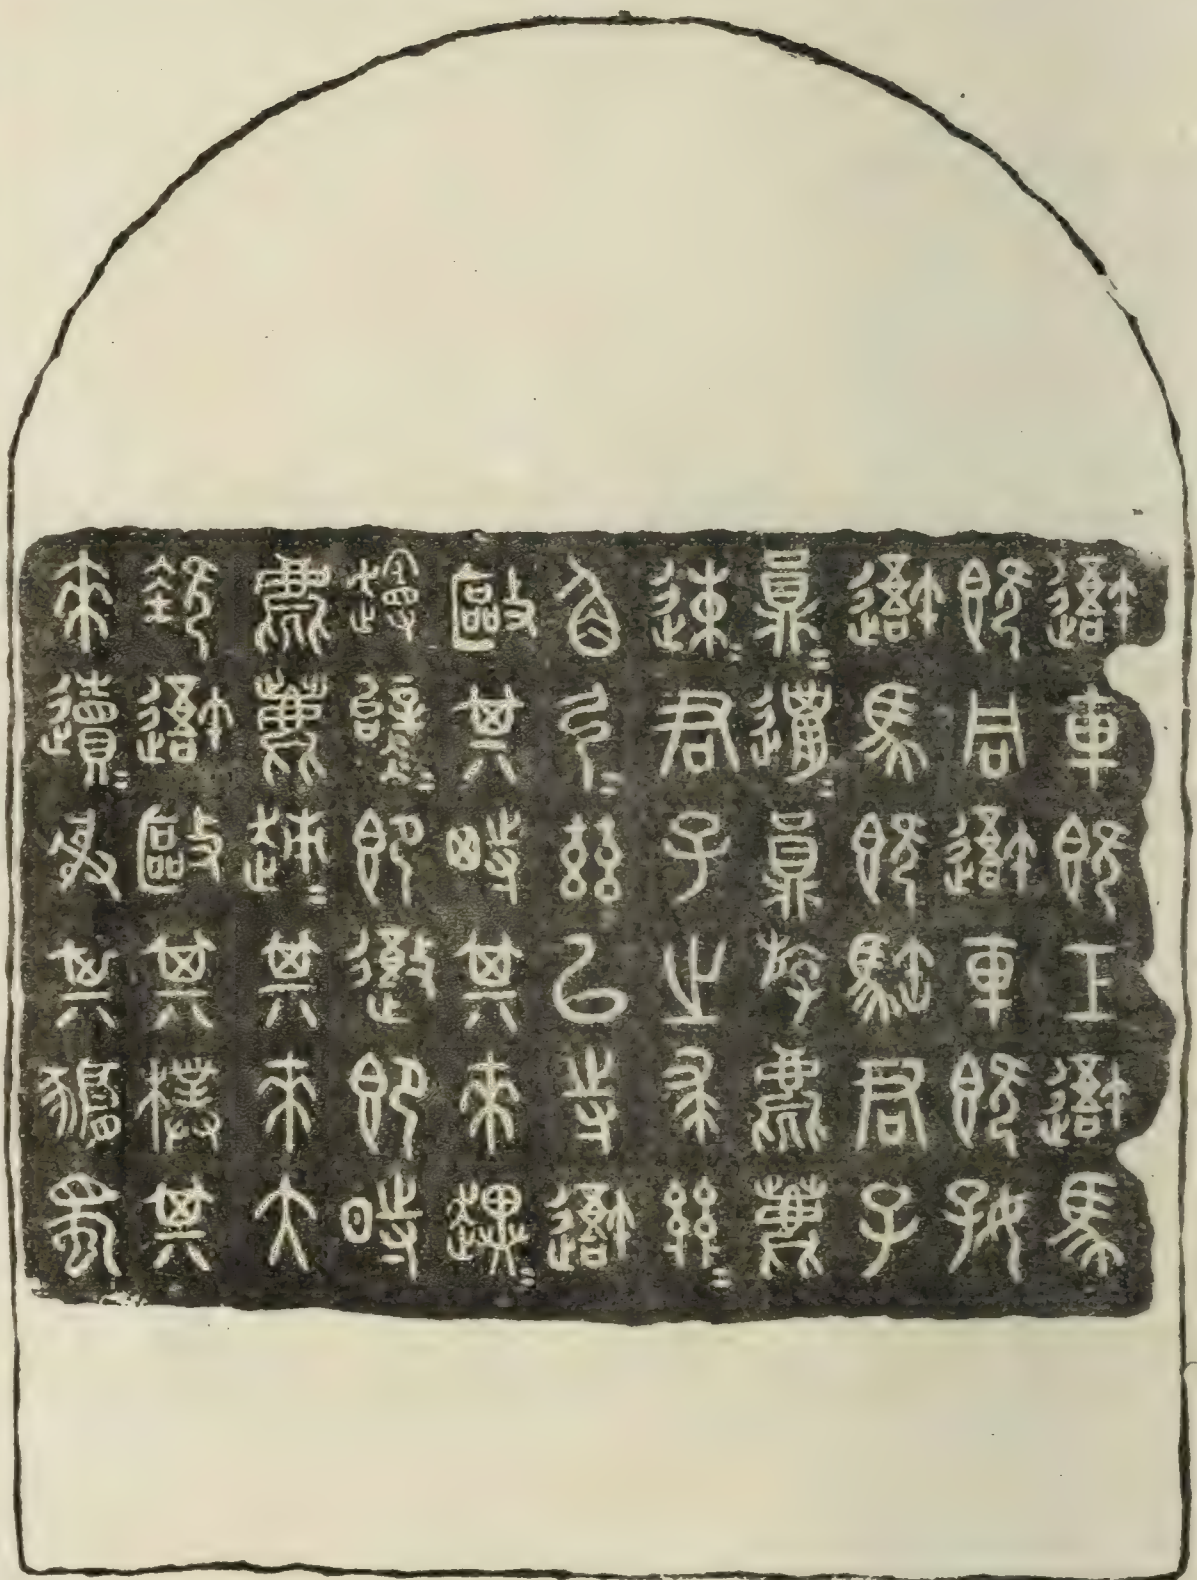 避車既工避馬
既同避車既好
避馬既駐君子
員=邋=員斿麀鹿
速=君子之求
角弓=茲以寺避
毆其特其來趩=
即禦即時
麀鹿趚=其來大
避毆其樸其
來遺=射其豜蜀